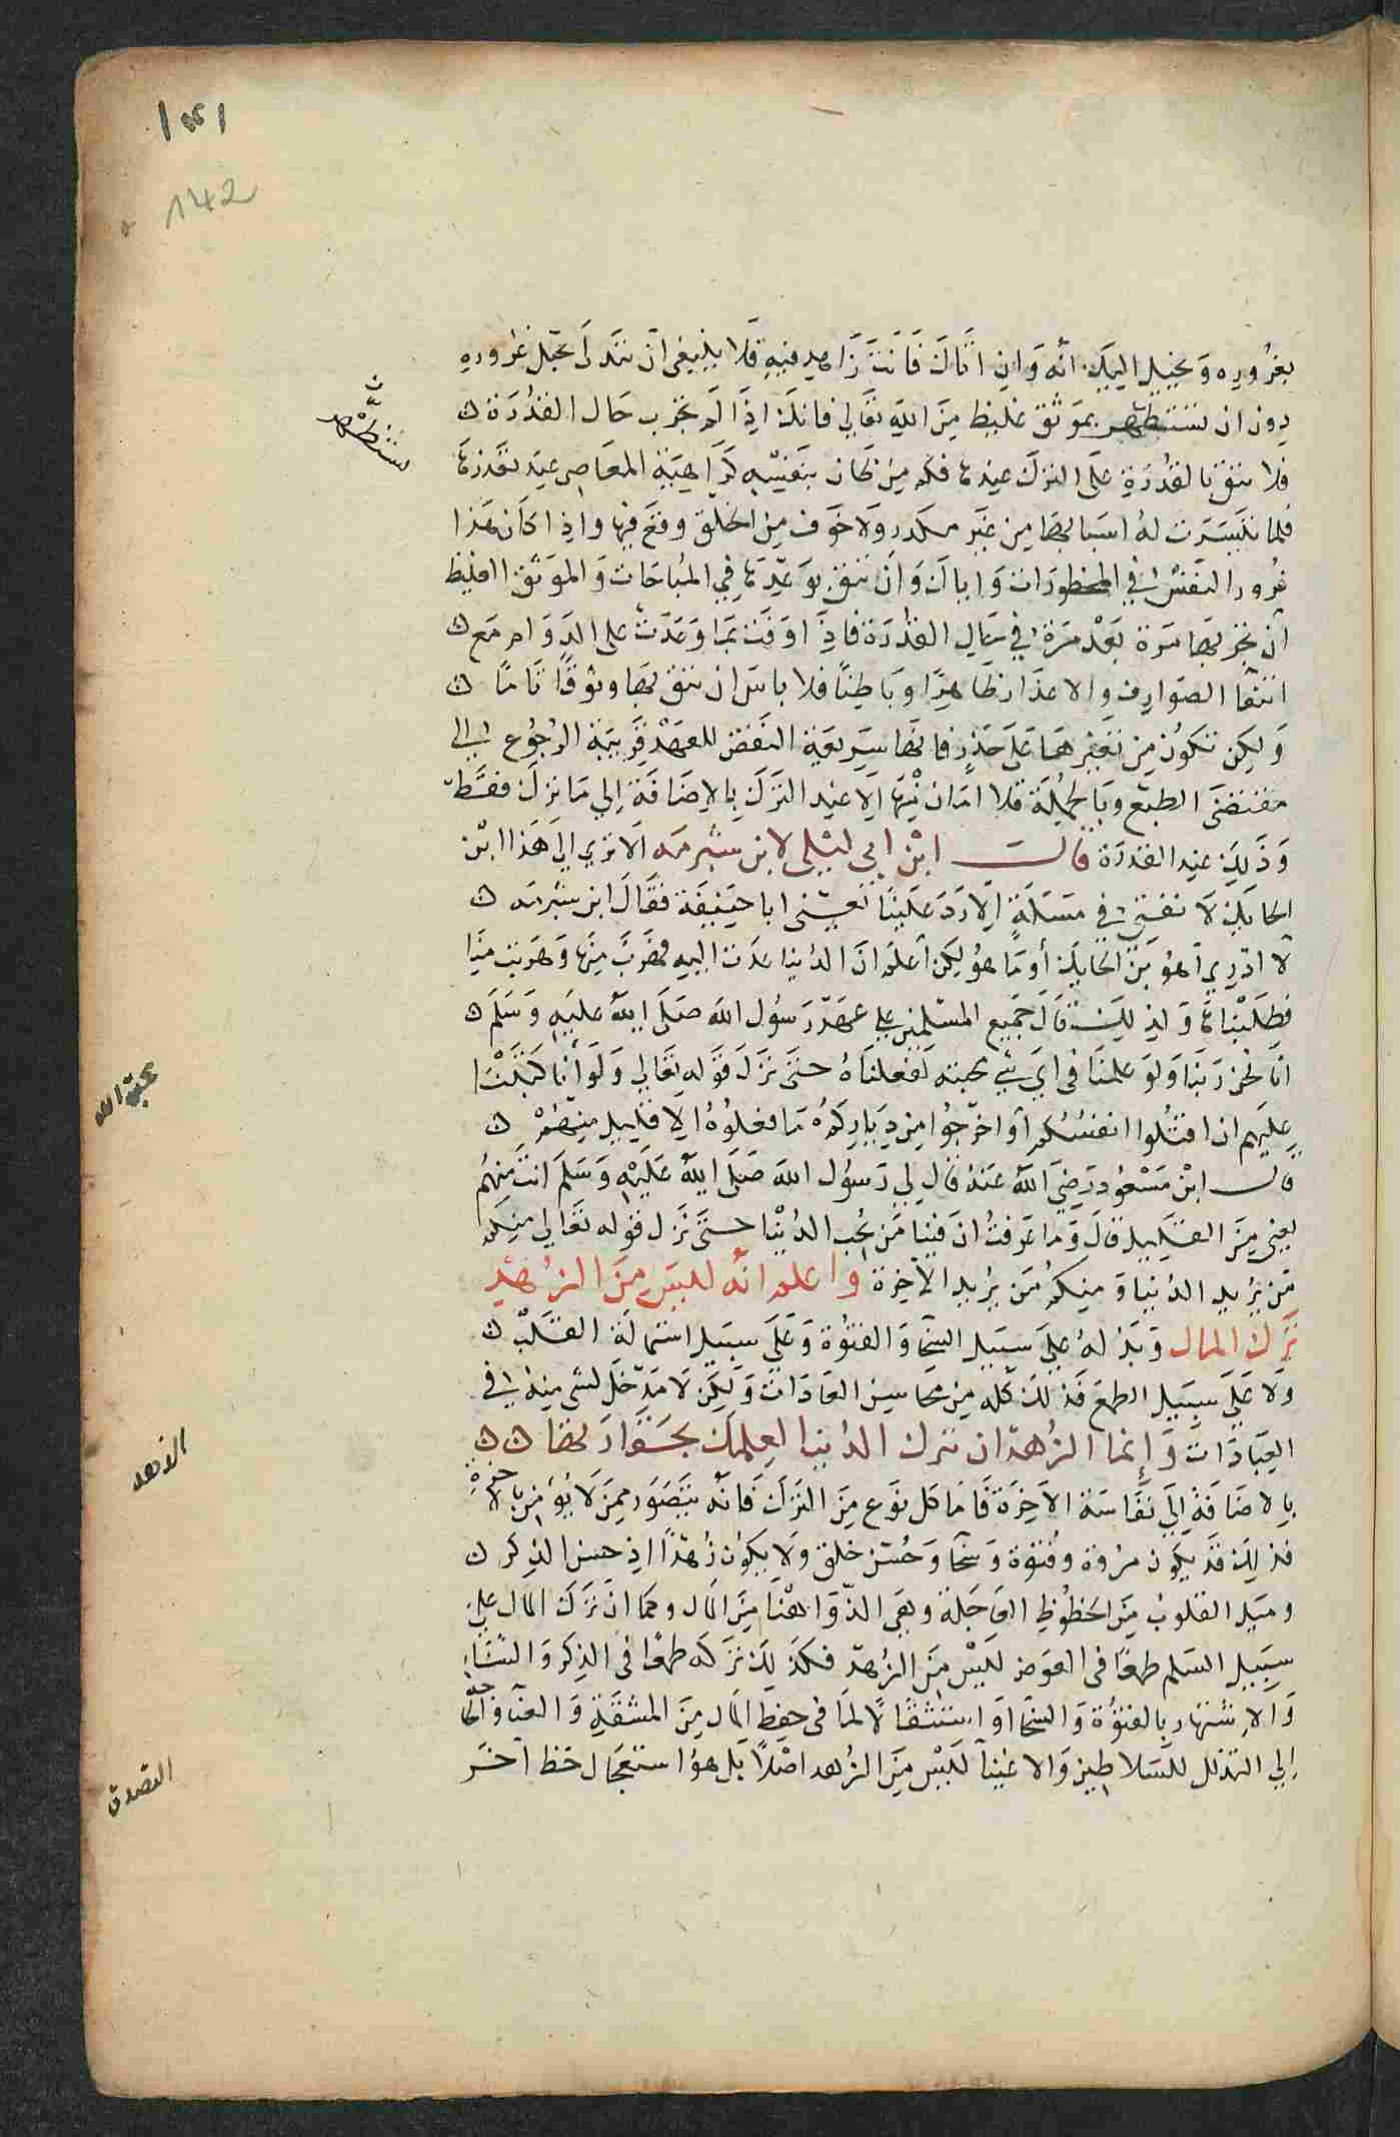 ١٤١
142
بغروره ويخيل اليك انه وان اتاك فانت زاهد فيه فلا ينبغى ان تتدلى بحبل غروره
دون ان تستظهر بموثق غليظ من الله تعالى فانك اذا لم تجرب حال القدرة
تستظهر
فلا تثق بالقدرة على الترك عندها فكم من ظان بنفسه كراهية المعاصى عند تعذرها
فلما تيسرت له اسبابها من غير مكدر ولا خوف من الخلق وقع فيها واذا كان هذا
غرور النفس فى المحظورات واياك وان تثق بوعدها فى المباحات والموثق الغليظ
ان تجربها مرة بعد مرة فى حال القدرة فاذا وفت بما وعدت على الدوام مع
انتفا الصوارف والاعذار ظاهرا وباطنا فلا باس ان تثق بها وثوقا تاما
ولكن تكون من تغيرها على حذر فانها سريعة النقض للعهد قريبة الرجوع الى
مقتضى الطبع وبالجملة فلا امان منها الا عند الترك بالاضافة الى ما ترك فقط
وذلك عند القدرة قالـــ ابن ابى ليلى لابن شبرمه الا ترى الى هذا ابن
الحايك لا نفتى فى مسئلة الا رد علينا يعنى ابا حنيفة فقال ابن شبرمه
لا ادرى اهو بن الحايك أو ما هو لكن اعلم ان الدنيا غدت اليه فهرب منها وهربت منا
فطلبناها ولذلك قال جميع المسلمين على عهد رسول الله صلى الله عليه وسلم
انا نحن ربنا ولو علمنا فى اى شي محبته لفعلناه حتى نزل قوله تعالى ولو أنا كتبنا
محبة الله
عليهم ان اقتلوا انفسكم أو اخرجوا من دياركم ما فعلوه الا قليل منهم
قالـــ ابن مسعود رضى الله عنه قال لى رسول الله صلى الله عليه وسلم انت منهم
يعنى من القليل قال وما عرفت ان فينا من يحب الدنيا حتى نزل قوله تعالى منكم
من يريد الدنيا ومنكم من يريد الآخرة واعلم انه ليس من الزهد
ترك المال وبذله على سبيل السخا والفتوة وعلى سبيل استمالة القلب
ولا على سبيل الطمع فذلك كله من محاسن العادات ولكن لا مدخل لشى منه فى
العبادات وإنما الزهد ان تترك الدنيا لعلمك بحقارتها
الزهد
بالاضافة إلى نفاسة الآخرة فاما كل نوع من الترك فانه يتصور ممن لا يؤمن بالآخرة
فذلك قد يكون مروة وفتوة وسخا وحسن خلق ولا يكون زهدا اذ حسن الذكر
وميل القلوب من الحظوظ العاجلة وهى الذ واهنا من المال وكما ان ترك المال على
سبيل السلم طمعا فى العوض ليس من الزهد فكذلك تركه طمعا فى الذكر والثناء
والاشتهار بالفتوة والسخا او استثقالا لما فى حفظ المال من المشقة والعنا والحاجة
إلى التذلل للسلاطين والاغنيا ليس من الزهد اصلا بل هو استعجال حظ آخر
التصدق